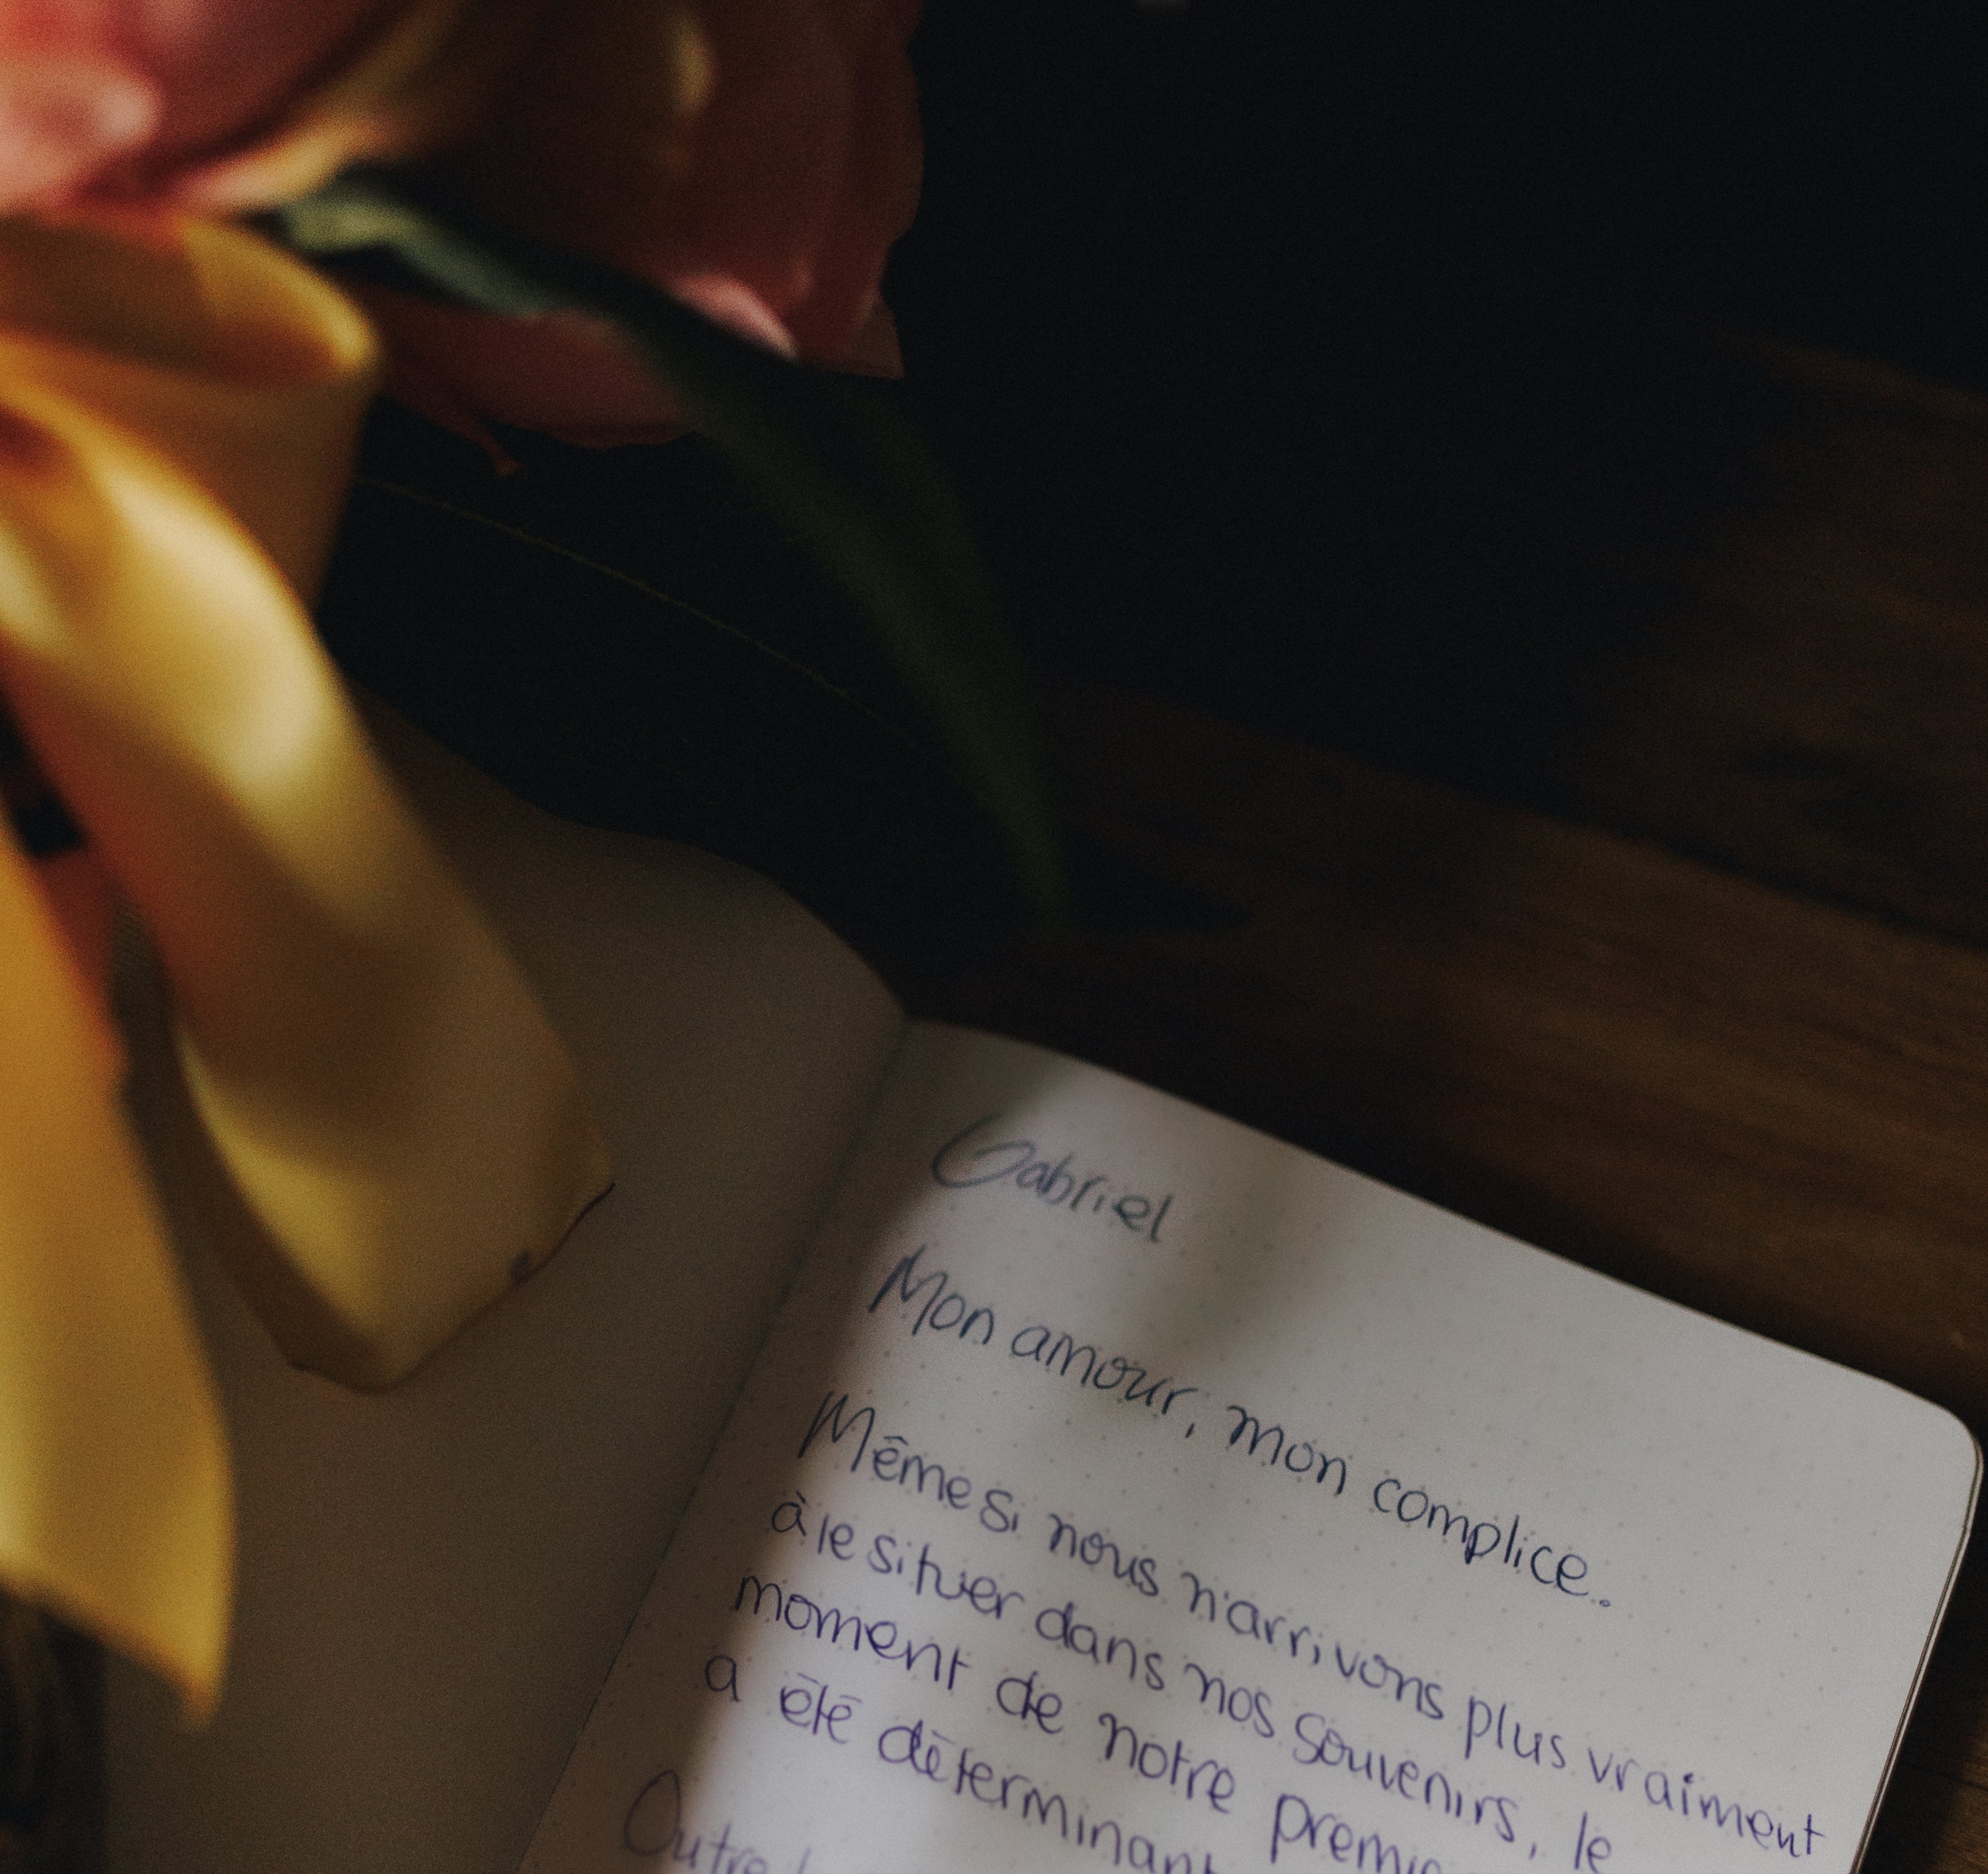 Gabriel
Mon amour, mon complice.
Même si nous n'arrivons plus vraiment
à le situer dans nos souvenirs, le
moment de notre
a été déterminant